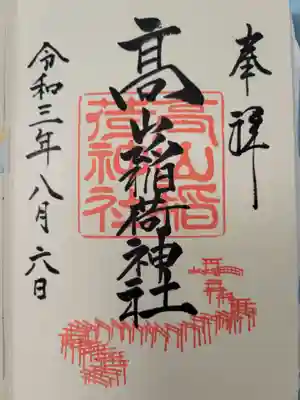 奉拝
髙山稲荷神社
髙山稲荷神社
令和三年八月六日